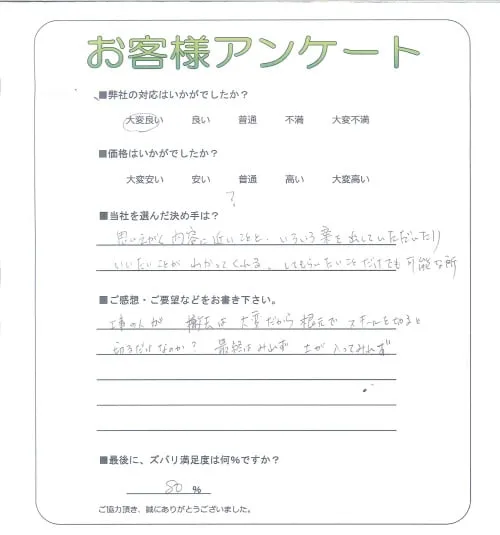 お客様アンケート
■弊社の対応はいかがでしたか？
大変良い 良い 普通 不満 大変不満
■価格はいかがでしたか？
大変安い 安い 普通 高い 大変高い
?
■当社を選んだ決め手は？
思いえがく内容に近いことと、いろいろ案を出していただいたり
いいたいことが わかってくれる。してもらいたいことだけでも可能な所
■ご感想・ご要望などをお書き下さい。
撤去は 大変だから 根元で スチールを切ると
切るだけなのか? 最終はみれず 土が入ってみれず
■最後に、ズバリ満足度は何％ですか？
80 %
ご協力頂き、誠にありがとうございました。